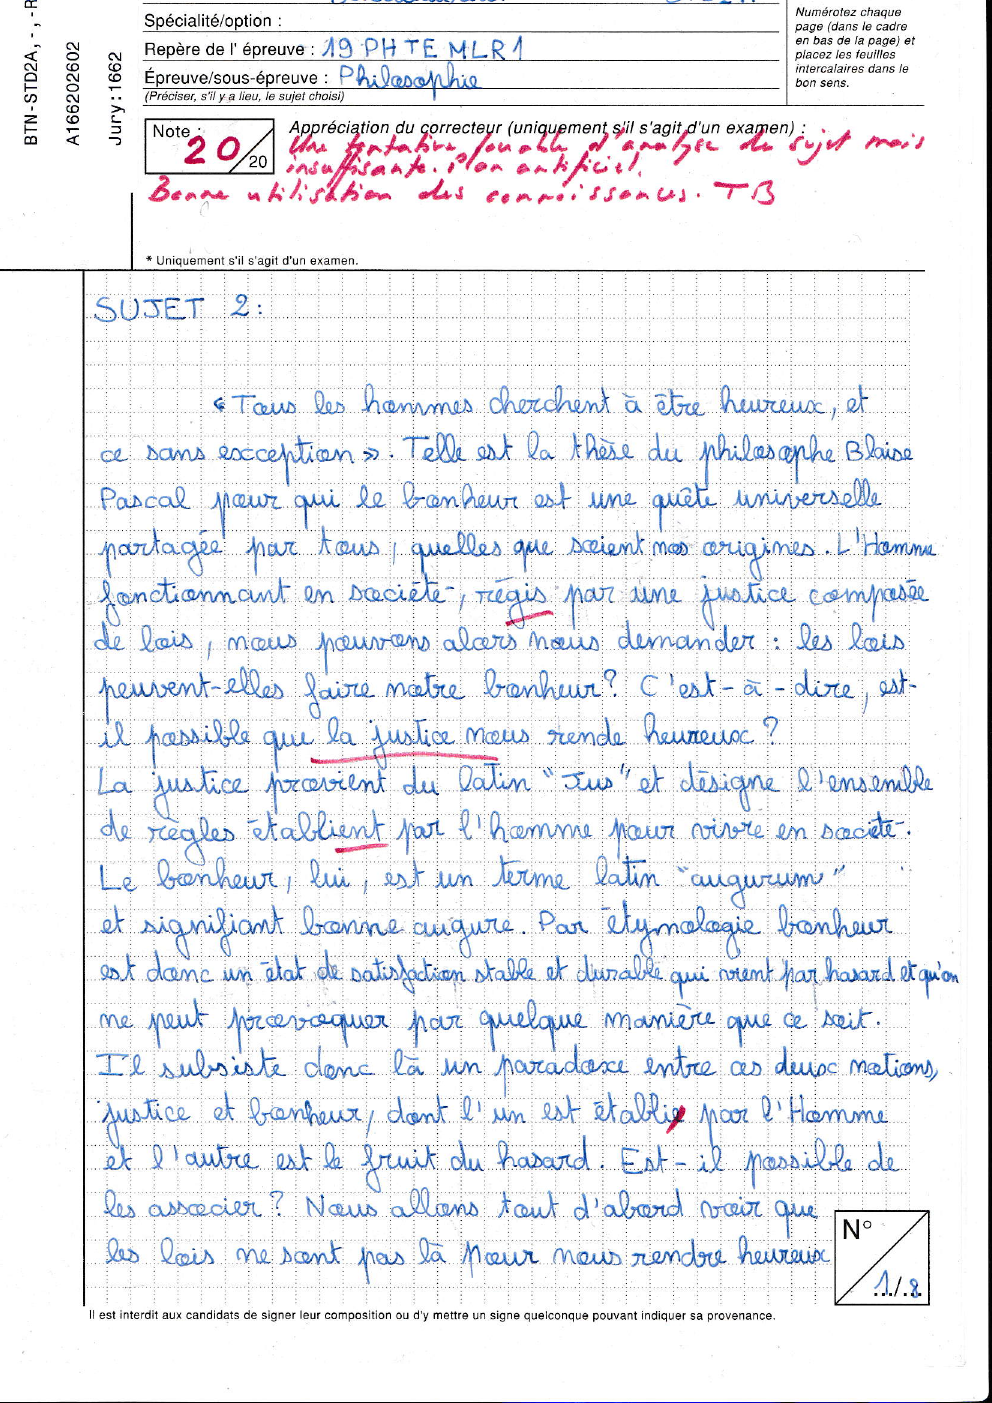 Spécialité/option :
Repère de l' épreuve : 19 PHTEMLR1
Épreuve/sous-épreuve : Philosophie
(Préciser, s'il y a lieu, le sujet choisi)
Numérotez chaque
page (dans le cadre
en bas de la page) et
placez les feuilles
intercalaires dans le
bon sens.
BTN-STD2A, - , -R
A166202602
Jury:1662
Note : 20/20
Appréciation du correcteur (uniquement s'il s'agit d'un examen) :
Une tentative louable d'analyse du sujet mais
insuffisante. Plan artificiel.
Bonne utilisation des connaissances. TB
* Uniquement s'il s'agit d'un examen.
SUJET 2 :
« Tous les hommes cherchent à être heureux, et
ce sans exception ». Telle est la thèse du philosophe Blaise
Pascal pour qui le bonheur est une quête universelle
partagée par tous, quelles que soient nos origines. L'Homme
fonctionnant en société, régis par une justice composée
de lois, nous pouvons alors nous demander : les lois
peuvent-elles faire notre bonheur ? C'est-à-dire, est-
il possible que la justice nous rende heureux ?
La justice provient du latin "Jus" et désigne l'ensemble
de règles établient par l'homme pour vivre en société.
Le bonheur, lui, est un terme latin "augurum"
et signifiant bonne augure. Par étymologie bonheur
est donc un état de satisfaction stable et durable qui vient par hasard et qu'on
ne peut provoquer par quelque manière que ce soit.
Il subsiste donc là un paradoxe entre ces deux notions,
justice et bonheur, dont l'un est établie par l'Homme
et l'autre est le fruit du hasard. Est-il possible de
les associer ? Nous allons tout d'abord voir que
les lois ne sont pas là pour nous rendre heureux
N°
1/8
Il est interdit aux candidats de signer leur composition ou d'y mettre un signe quelconque pouvant indiquer sa provenance.